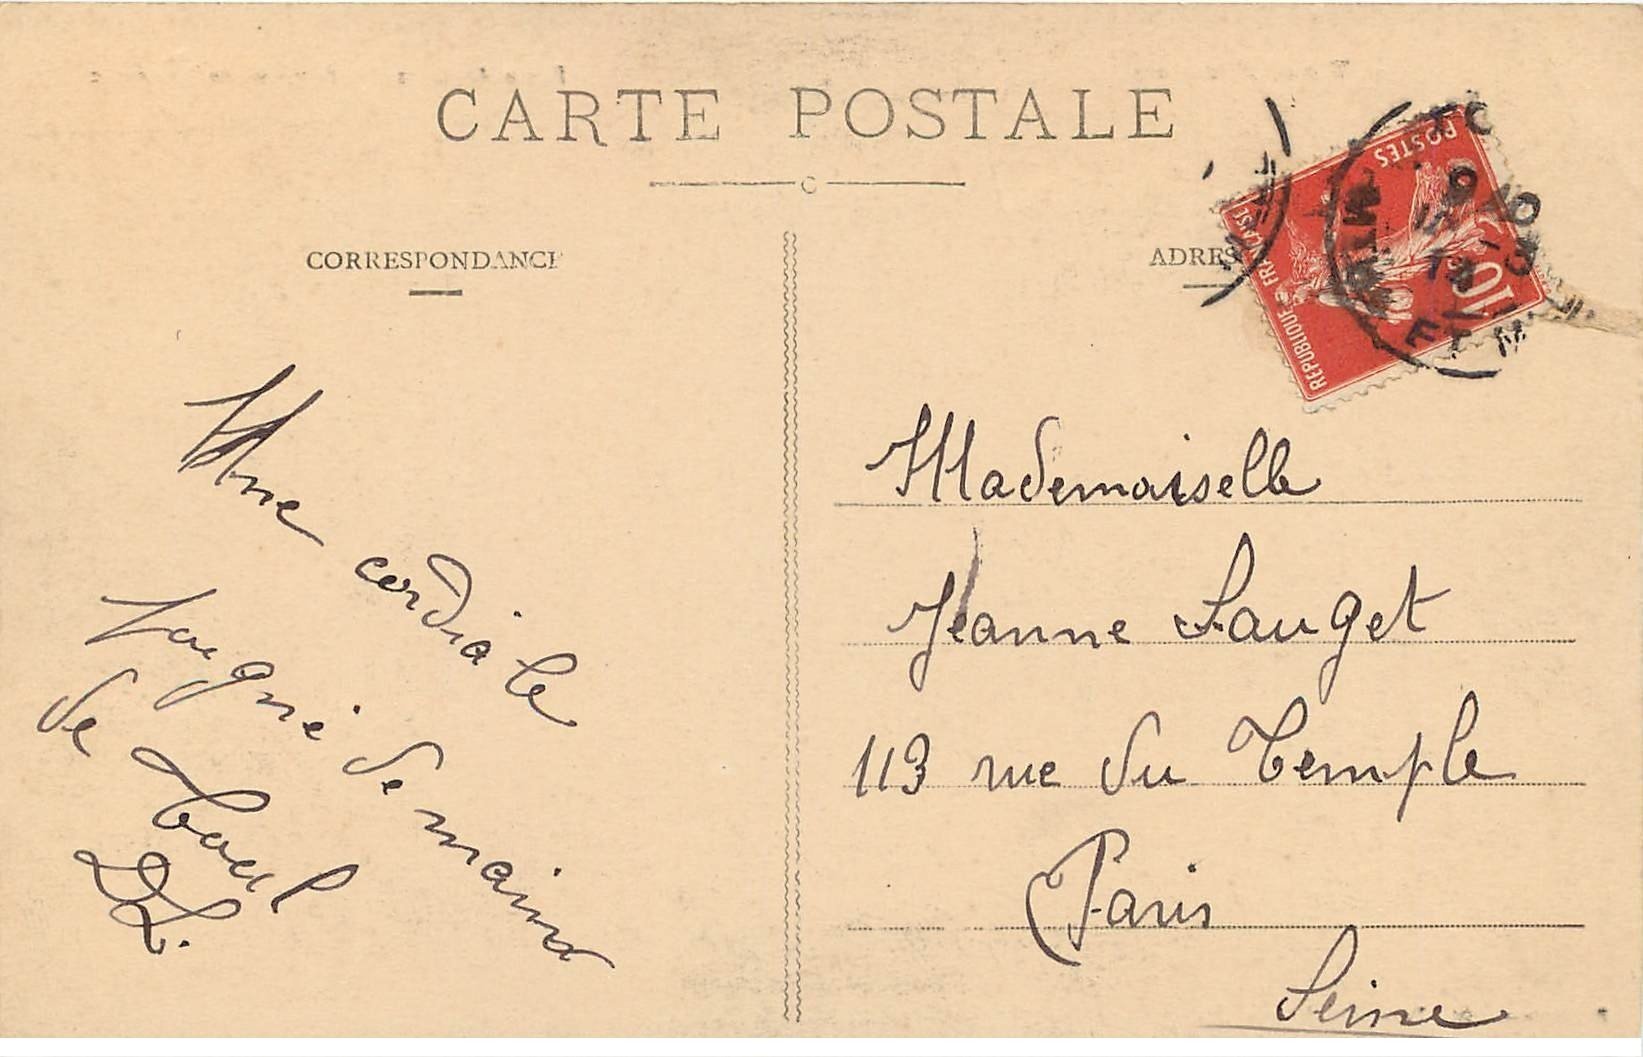 CARTE POSTALE
CORRESPONDANCE
ADRES
POSTES
RÉPUBLIQUE FRANÇAISE
10
Une cordiale
poignée de mains
de
Mademoiselle
Jeanne Fauget
113 rue du Temple
Paris
Seine